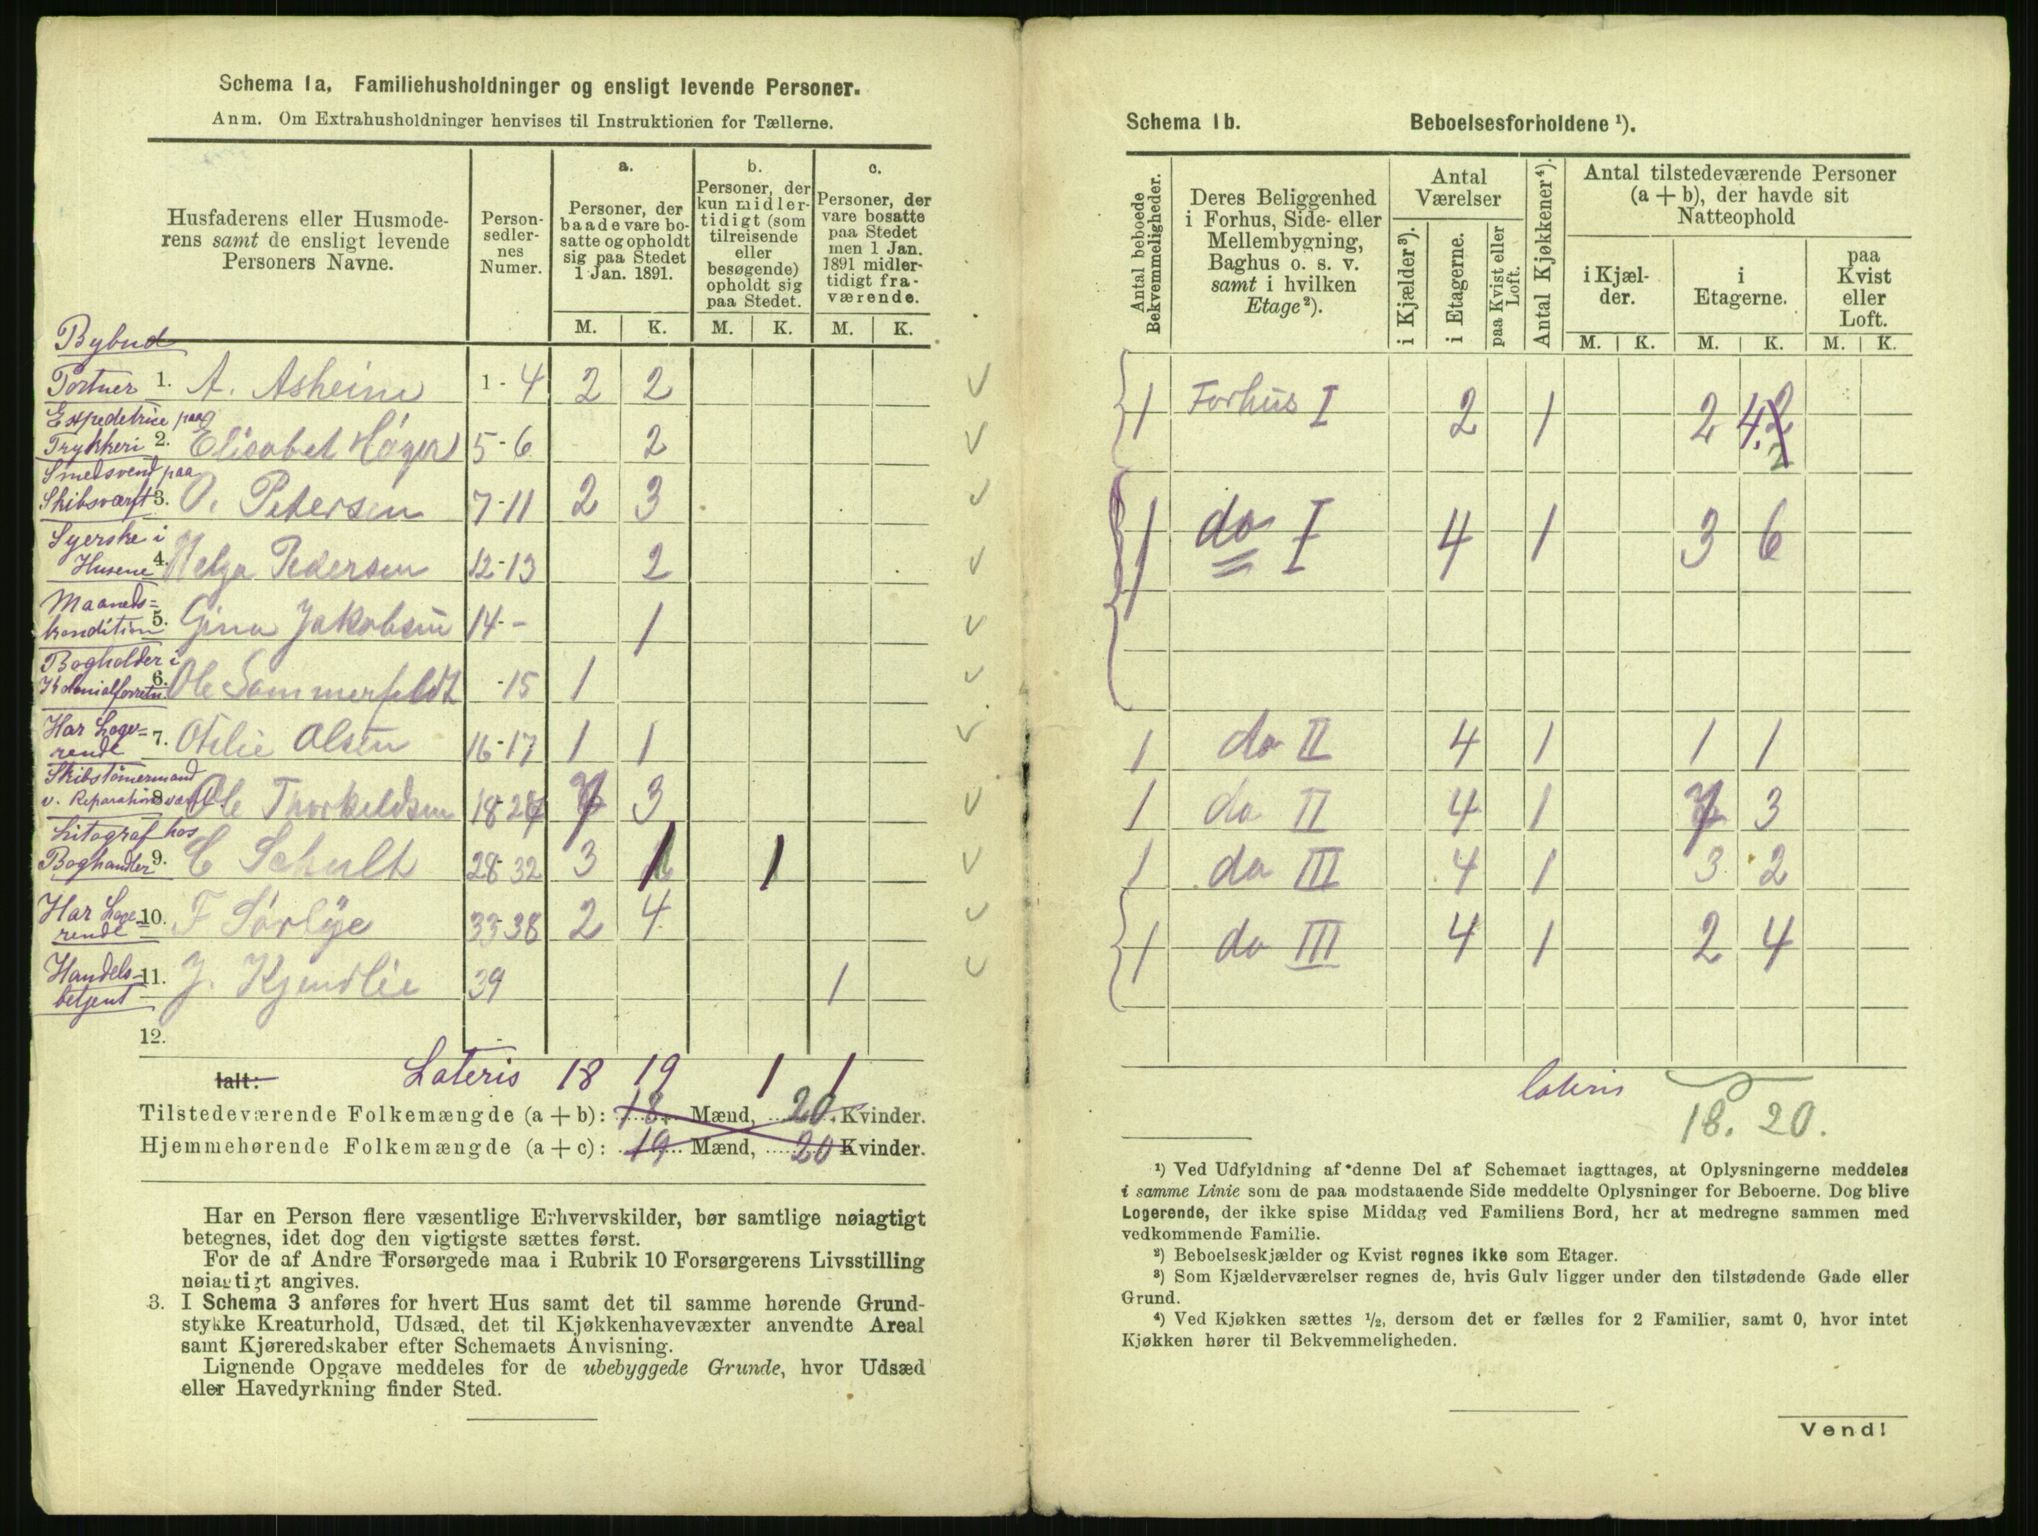 Schema 1a. Familiehusholdninger og ensligt levende Personer.
Anm. Om Extrahusholdninger henvises til Instruktionen for Tællerne.
Husfaderens eller Husmoderens samt de ensligt levende Personers Navne.
Personsedlernes Numer.
a. Personer, der baade vare bosatte og opholdt sig paa Stedet 1 Jan. 1891.
b. Personer, der kun midlertidigt (som tilreisende eller besøgende) opholdt sig paa Stedet.
c. Personer, der vare bosatte paa Stedet men 1 Jan. 1891 midlertidigt fraværende.
M. K. M. K. M. K.
Bybud
Portner 1. A. Asheim 1-4 2 2
Expeditrice paa
Trykkeri 2. Elisabet Høger 5-6 2
Smedsvend paa
Skibsværft 3. O. Petersen 7-11 2 3
Syerske i
Husene 4. Helga Pedersen 12-13 2
Maaneds=
kondition 5. Gina Jakobsen 14- 1
Bogholder i
Kolonialforretn. 6. Ole Sommerfeldt -15 1
Har Loge=
rende 7. Otilie Olsen 16-17 1 1
Skibstömermand
v. Reparationsværft 8. Ole Thorkeldsen 18-27 7 3
Litograf hos
Boghandler 9. C Schult 28-32 3 1 1
Har Loge=
rende 10. F Sørlye 33-38 2 4
Handels=
betjent 11. J. Kjendlie 39 1
12.
Ialt: Lateris 18 19 1 1
Tilstedeværende Folkemængde (a + b): 18 Mænd, 20 Kvinder.
Hjemmehørende Folkemængde (a + c): 19 Mænd, 20 Kvinder.
Har en Person flere væsentlige Erhvervskilder, bør samtlige nøiagtigt
betegnes, idet dog den vigtigste sættes først.
For de af Andre Forsørgede maa i Rubrik 10 Forsørgerens Livsstilling
nøiagtigt angives.
3. I Schema 3 anføres for hvert Hus samt det til samme hørende Grund-
stykke Kreaturhold, Udsæd, det til Kjøkkenhavevæxter anvendte Areal
samt Kjøreredskaber efter Schemaets Anvisning.
Lignende Opgave meddeles for de ubebyggede Grunde, hvor Udsæd
eller Havedyrkning finder Sted.
Schema 1b. Beboelsesforholdene ¹).
Antal beboede Bekvemmeligheder.
Deres Beliggenhed i Forhus, Side- eller Mellembygning, Baghus o. s. v. samt i hvilken Etage²).
Antal Værelser
i Kjælder³).
i Etagerne.
paa Kvist eller Loft.
Antal Kjøkkener⁴).
Antal tilstedeværende Personer (a + b), der havde sit Natteophold
i Kjælder.
i Etagerne.
paa Kvist eller Loft.
M. K. M. K. M. K.
1 Forhus I 2 1 2 4. 2
2
1 do I 4 1 3 6
1 do II 4 1 1 1
1 do II 4 1 7 3
1 do III 4 1 3 2
1 do III 4 1 2 4
lateris
18. 20.
¹) Ved Udfyldning af denne Del af Schemaet iagttages, at Oplysningerne meddeles
i samme Linie som de paa modstaaende Side meddelte Oplysninger for Beboerne. Dog blive
Logerende, der ikke spise Middag ved Familiens Bord, her at medregne sammen med
vedkommende Familie.
²) Beboelseskjælder og Kvist regnes ikke som Etager.
³) Som Kjælderværelser regnes de, hvis Gulv ligger under den tilstødende Gade eller
Grund.
⁴) Ved Kjøkken sættes ½, dersom det er fælles for 2 Familier, samt 0, hvor intet
Kjøkken hører til Bekvemmeligheden.
Vend!